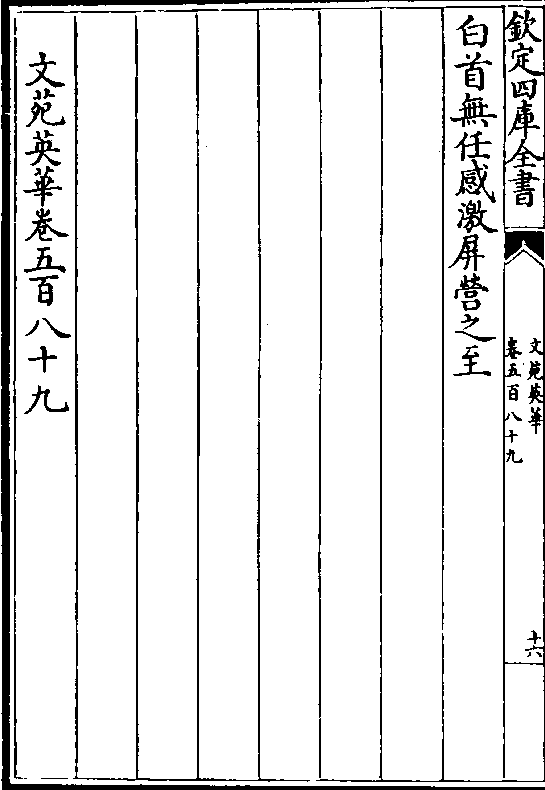 欽定四庫全書
文苑英華
卷五百八十九
十六
白首無任感激屏營之至
文苑英華卷五百八十九